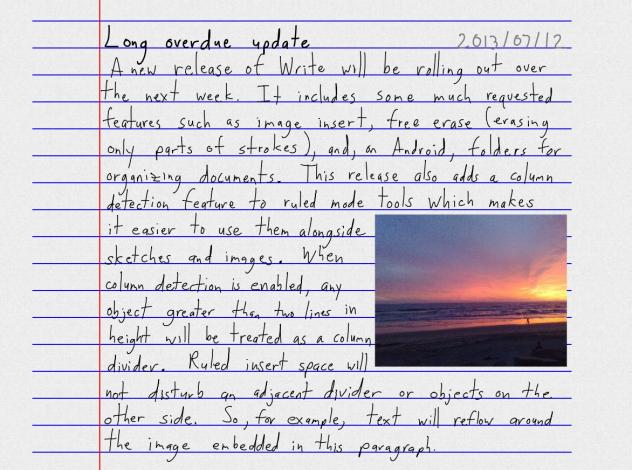 Long overdue update 2013/07/12
A new release of Write will be rolling out over
the next week. It includes some much requested
features such as image insert, free erase (erasing
only parts of strokes), and, on Android, folders for
organizing documents. This release also adds a column
detection feature to ruled mode tools which makes
it easier to use them alongside
sketches and images. When
column detection is enabled, any
object greater than two lines in
height will be treated as a column
divider. Ruled insert space will
not disturb an adjacent divider or objects on the
other side. So, for example, text will reflow around
the image embedded in this paragraph.